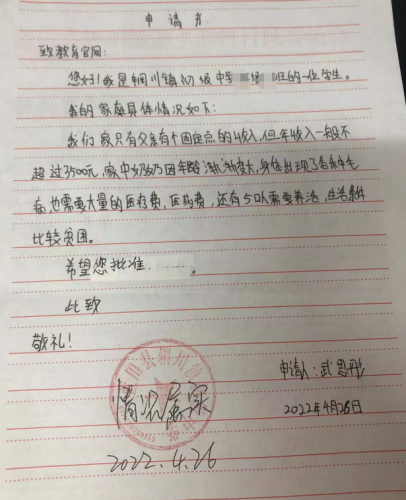 申请书
致教育官网:
您好!我是铜川镇初级中学 班的一位学生。
我的家庭具体情况如下:
我们家只有父亲有个固定点的收入,但年收入一般不
超过3500元,家中奶奶因年龄渐渐变大,身体出现了各种毛
病,也需要大量的医药费,医药费,还有5口人需要养活,生活条件
比较贫困。
希望您批准 。
此致
敬礼!
申请人:武思彤
2022年4月26日
情况属实
2022.4.26